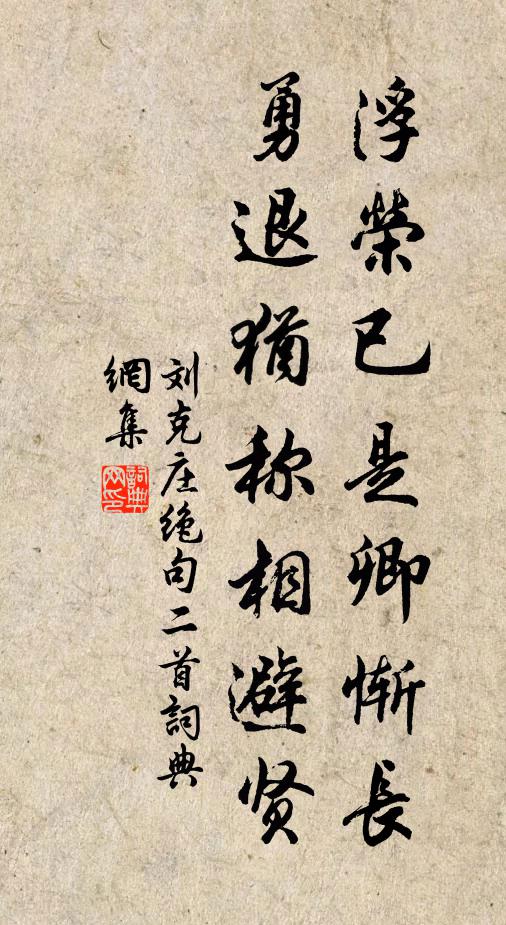 浮榮已是卿惭長
勇退猶称相避贤
刘克庄绝句二首詞典
網集
詞典网印